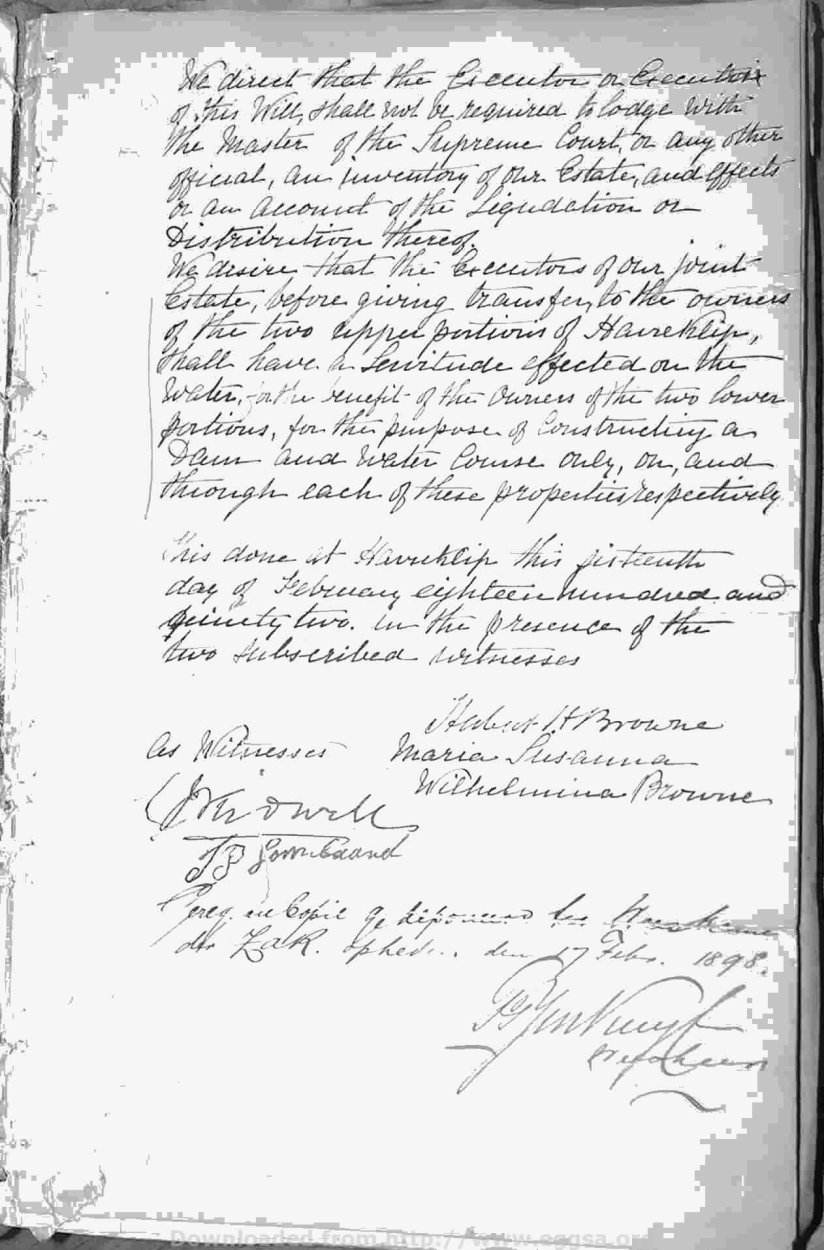 We direct that the Executor or Executrix
of this Will, shall not be required to lodge with
the Master of the Supreme Court, or any other
official, an inventory of our Estate, and effects
or an account of the Liquidation or
Distribution thereof.
We desire that the Executors of our joint
Estate, before giving transfer, to the owners
of the two upper portions of Havreklip,
shall have a Servitude effected on the
Water, for the benefit of the Owners of the two lower
portions, for the purpose of Constructing a
Dam and Water Course only, on, and
through each of these properties respectively
This done at Havreklip this
day of February eighteen hundred and
ninety two. In the presence of the
two subscribed witnesses
Hubert H Browne
As Witnesses Maria Susanna
Wilhelmina Browne
Gereg. en Copie
der Z.A.R. den 17 Febr. 1898.
Downloaded from http://www.eggsa.org